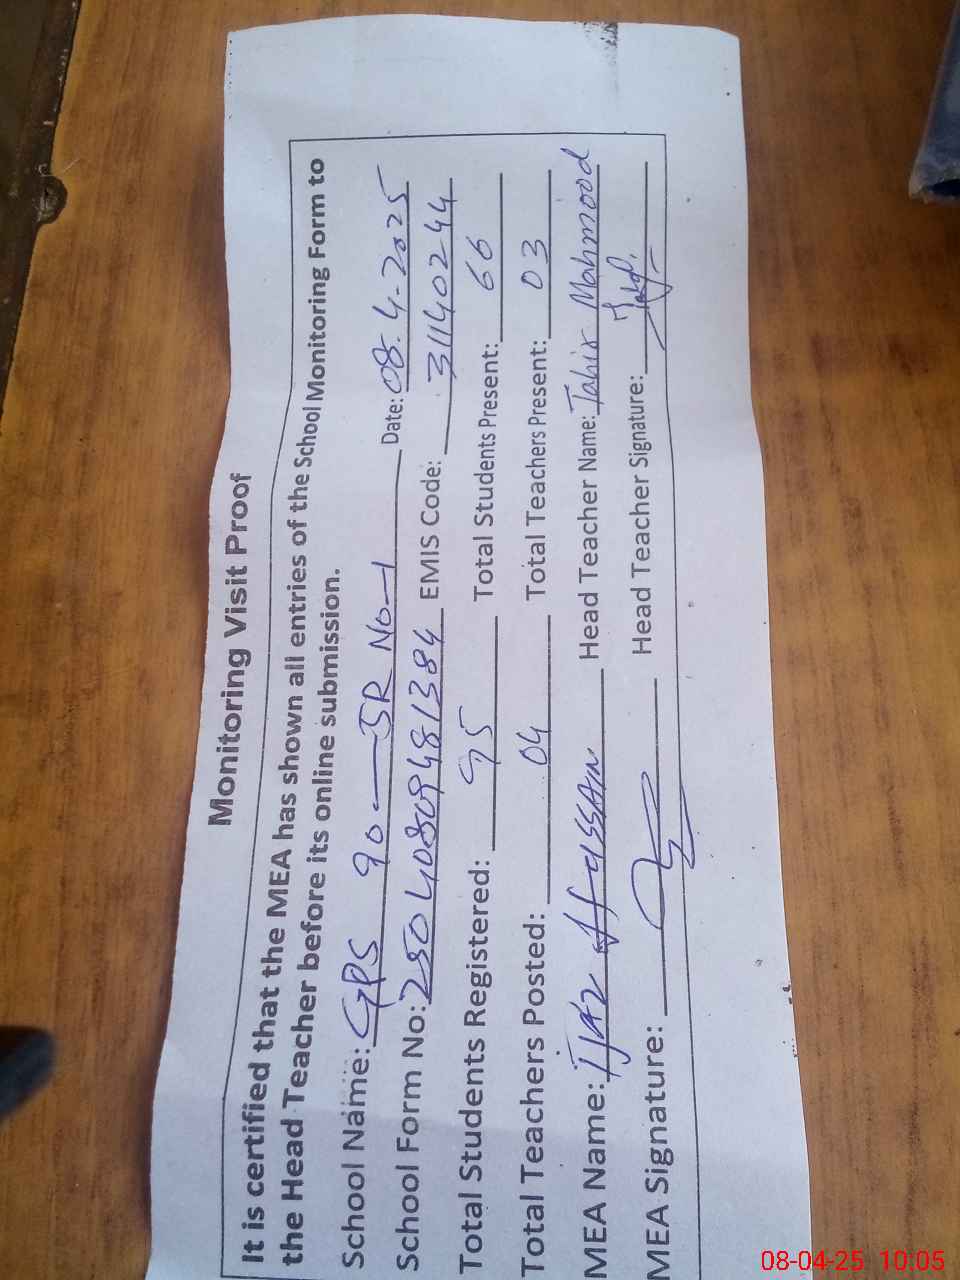 Monitoring Visit Proof
It is certified that the MEA has shown all entries of the School Monitoring Form to
the Head Teacher before its online submission.
School Name: GPS 90-5R No-1 Date: 08.4.2025
School Form No: 25040809481384 EMIS Code: 31140244
Total Students Registered: 95 Total Students Present: 66
Total Teachers Posted: 04 Total Teachers Present: 03
MEA Name: Ijaz Hassan Head Teacher Name: Tahir Mahmood
MEA Signature: Head Teacher Signature:
08-04-25 10:05